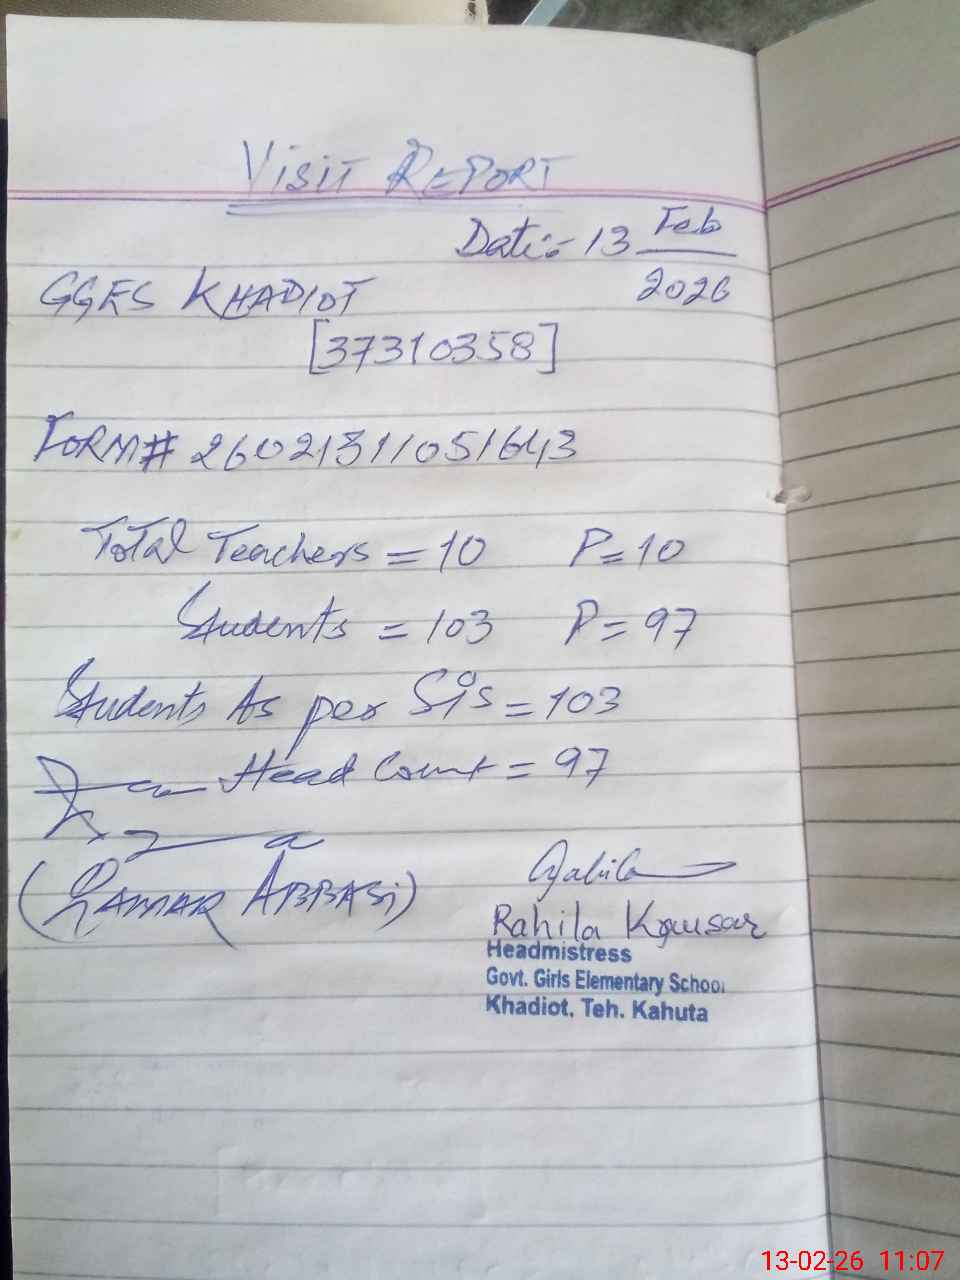 VISIT REPORT
Date:- 13 Feb
2026
GGES KHADIOT
[37310358]
FORM# 26021311051643
Total Teachers = 10 P=10
Students = 103 P=97
Students As per SiS = 103
Head Count = 97
(QAMAR ABBASi)
Rahila Kousar
Headmistress
Govt. Girls Elementary School
Khadiot. Teh. Kahuta
13-02-26 11:07